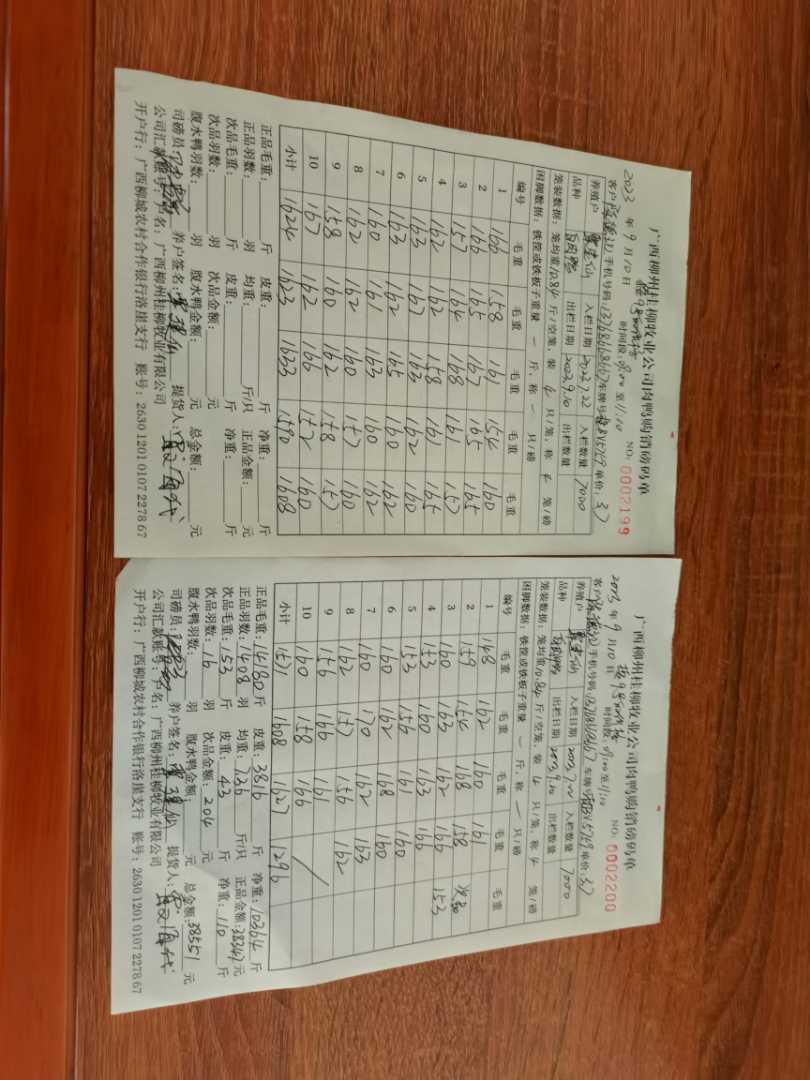 广西柳州桂柳牧业公司肉鸭购销磅码单
2023年9月10日 时间段:8:00至11:10 NO:0002199
客户 手机号码:13768668667 车牌号 单价:3.7
养殖户 入栏日期 2023.7.22 入栏数量 7000
品种 白肉鸭 出栏日期 2023.9.10 出栏数量
笼装数据:笼均重10.84斤/空笼,装4只/笼,称4笼/磅
困脚数据:铁筐或铁板子重量 一 斤,称 一 只/磅
编号 毛重 毛重 毛重 毛重 毛重
1 166 158 161 154 160
2 166 165 167 165 165
3 157 164 168 161 157
4 162 162 158 161 165
5 163 167 163 162 160
6 163 162 165 160 162
7 160 161 163 160 162
8 162 162 160 157 160
9 158 160 162 158 157
10 167 162 166 152 160
小计 1624 1623 1633 1590 1608
正品毛重: 斤 皮重: 斤 净重: 斤
正品羽数: 羽 均重: 斤/只 正品金额: 元
次品毛重: 斤 皮重: 斤 净重: 斤
次品羽数: 羽 次品金额: 元
腹水鸭羽数: 羽 腹水鸭金额: 元 总金额: 元
司磅员: 养户签名: 提货人:
公司汇款账号:户名:广西柳州桂柳牧业有限公司
开户行:广西柳城农村合作银行洛崖支行 账号:2630 1201 0107 2278 67
广西柳州桂柳牧业公司肉鸭购销磅码单
2023年9月10日 时间段:8:00至11:10 NO:0002200
客户 手机号码:13768668667 车牌号 单价:3.7
养殖户 入栏日期 2023.7.22 入栏数量 7000
品种 白肉鸭 出栏日期 2023.9.10 出栏数量
笼装数据:笼均重10.84斤/空笼,装4只/笼,称4笼/磅
困脚数据:铁筐或铁板子重量 一 斤,称 一 只/磅
编号 毛重 毛重 毛重 毛重 毛重
1 148 162 160 161
2 159 154 168 158 次品
3 160 163 162 160 153
4 153 160 163 166
5 153 156 161 160
6 160 162 168 160
7 160 170 162 163
8 162 157 156 162
9 156 166 161
10 160 158 166 /
小计 1571 1608 1627 1296
正品毛重:14180斤 皮重:3816斤 净重:10364斤
正品羽数:1408羽 均重:7.36斤/只 正品金额:38347元
次品毛重:153斤 皮重:43斤 净重:110斤
次品羽数:16羽 次品金额:204元
腹水鸭羽数: 羽 腹水鸭金额: 元 总金额:38551元
司磅员: 养户签名: 提货人:
公司汇款账号:户名:广西柳州桂柳牧业有限公司
开户行:广西柳城农村合作银行洛崖支行 账号:2630 1201 0107 2278 67